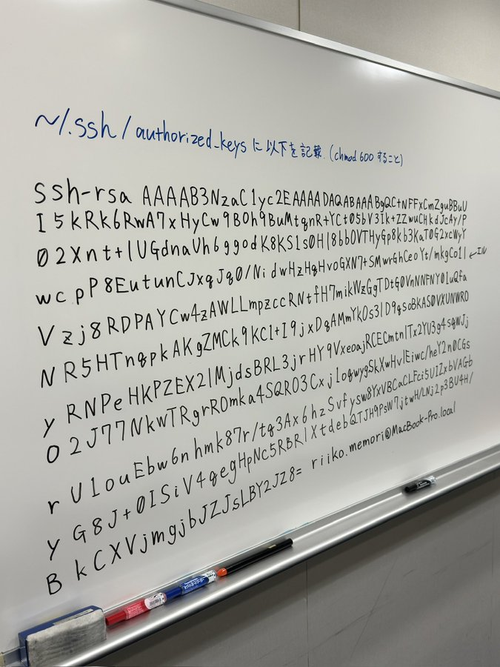 ~/.ssh/authorized_keys に以下を記載 (chmod 600 すること)
ssh-rsa AAAAB3NzaC1yc2EAAAADAQABAAABgQC+NFFxCmZguBBuU
I5kRk6RwA7xHyCw9B0h9BuMtqnR+YCt05bV3Ik+ZZwuCHkdJcAy/P
02Xnt+lUGdnaUh6ggodK8KS1s0H18bb0VTHyGp8kb3KaT0G2xcWyY
wcpP8EutunCJxqJq0/NidwHzHqHvoGXN7+SMwrGhCeoYt/mkgCoIl ←エル
Vzj8RDPAYCw4zAWLLmpzccRN+fH7mikWzGgTD+G0VnNNFNY0luQfa
NR5HTnqpkAKgZMCk9KC1+I9jxDqAMmYkOs3lD9qsoBKAS0VXUNWRO
yRNPeHKPZEX2lMjdsBRL3jrHY9VxeoajRCECmtnITx2YU3g4sqWJj
O2J77NkwTRgrROmka4SQRO3CxjloqwygSkXwHvlEiwc/heY2nOCGs
rUlouEbw6nhmk87r/tq3Ax6hzSvfysw8YxVBCaCLFci5UIIxbVAGb
yG8J+0ISiV4qegHpNc5RBRlXtdebQTJH9PsW7jtwH/LNj2p3BU4H/
BkCXVjmgjbJZJsLBY2JZ8= riiko.memori@MacBook-Pro.local